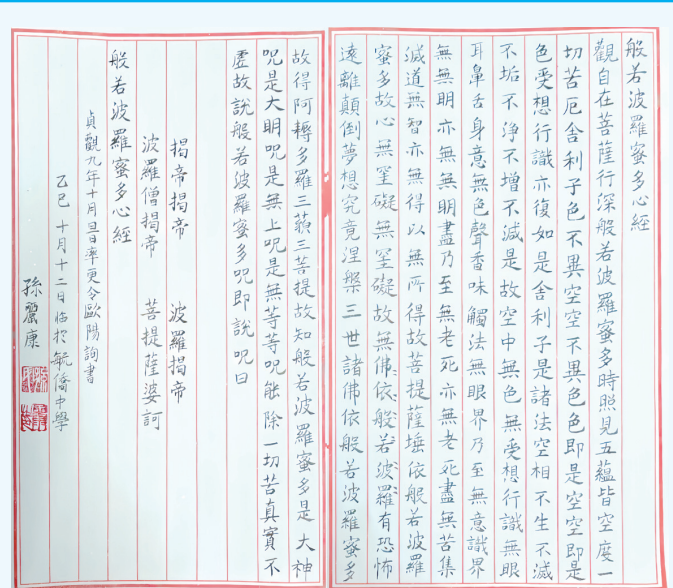 般若波羅蜜多心經
觀自在菩薩行深般若波羅蜜多時照見五蘊皆空度一
切苦厄舍利子色不異空空不異色色即是空空即是
色受想行識亦復如是舍利子是諸法空相不生不滅
不垢不淨不增不減是故空中無色無受想行識無眼
耳鼻舌身意無色聲香味觸法無眼界乃至無意識界
無無明亦無無明盡乃至無老死亦無老死盡無苦集
滅道無智亦無得以無所得故菩提薩埵依般若波羅
蜜多故心無罣礙無罣礙故無佛依般若波羅有恐怖
遠離顛倒夢想究竟涅槃三世諸佛依般若波羅蜜多
故得阿耨多羅三藐三菩提故知般若波羅蜜多是大神
咒是大明咒是無上咒是無等等咒能除一切苦真實不
虛故說般若波羅蜜多咒即說咒曰
揭帝揭帝 波羅揭帝
波羅僧揭帝 菩提薩婆訶
般若波羅蜜多心經
貞觀九年十月旦日率更令歐陽詢書
乙巳 十月十二日临於毓僑中學
孫麗康